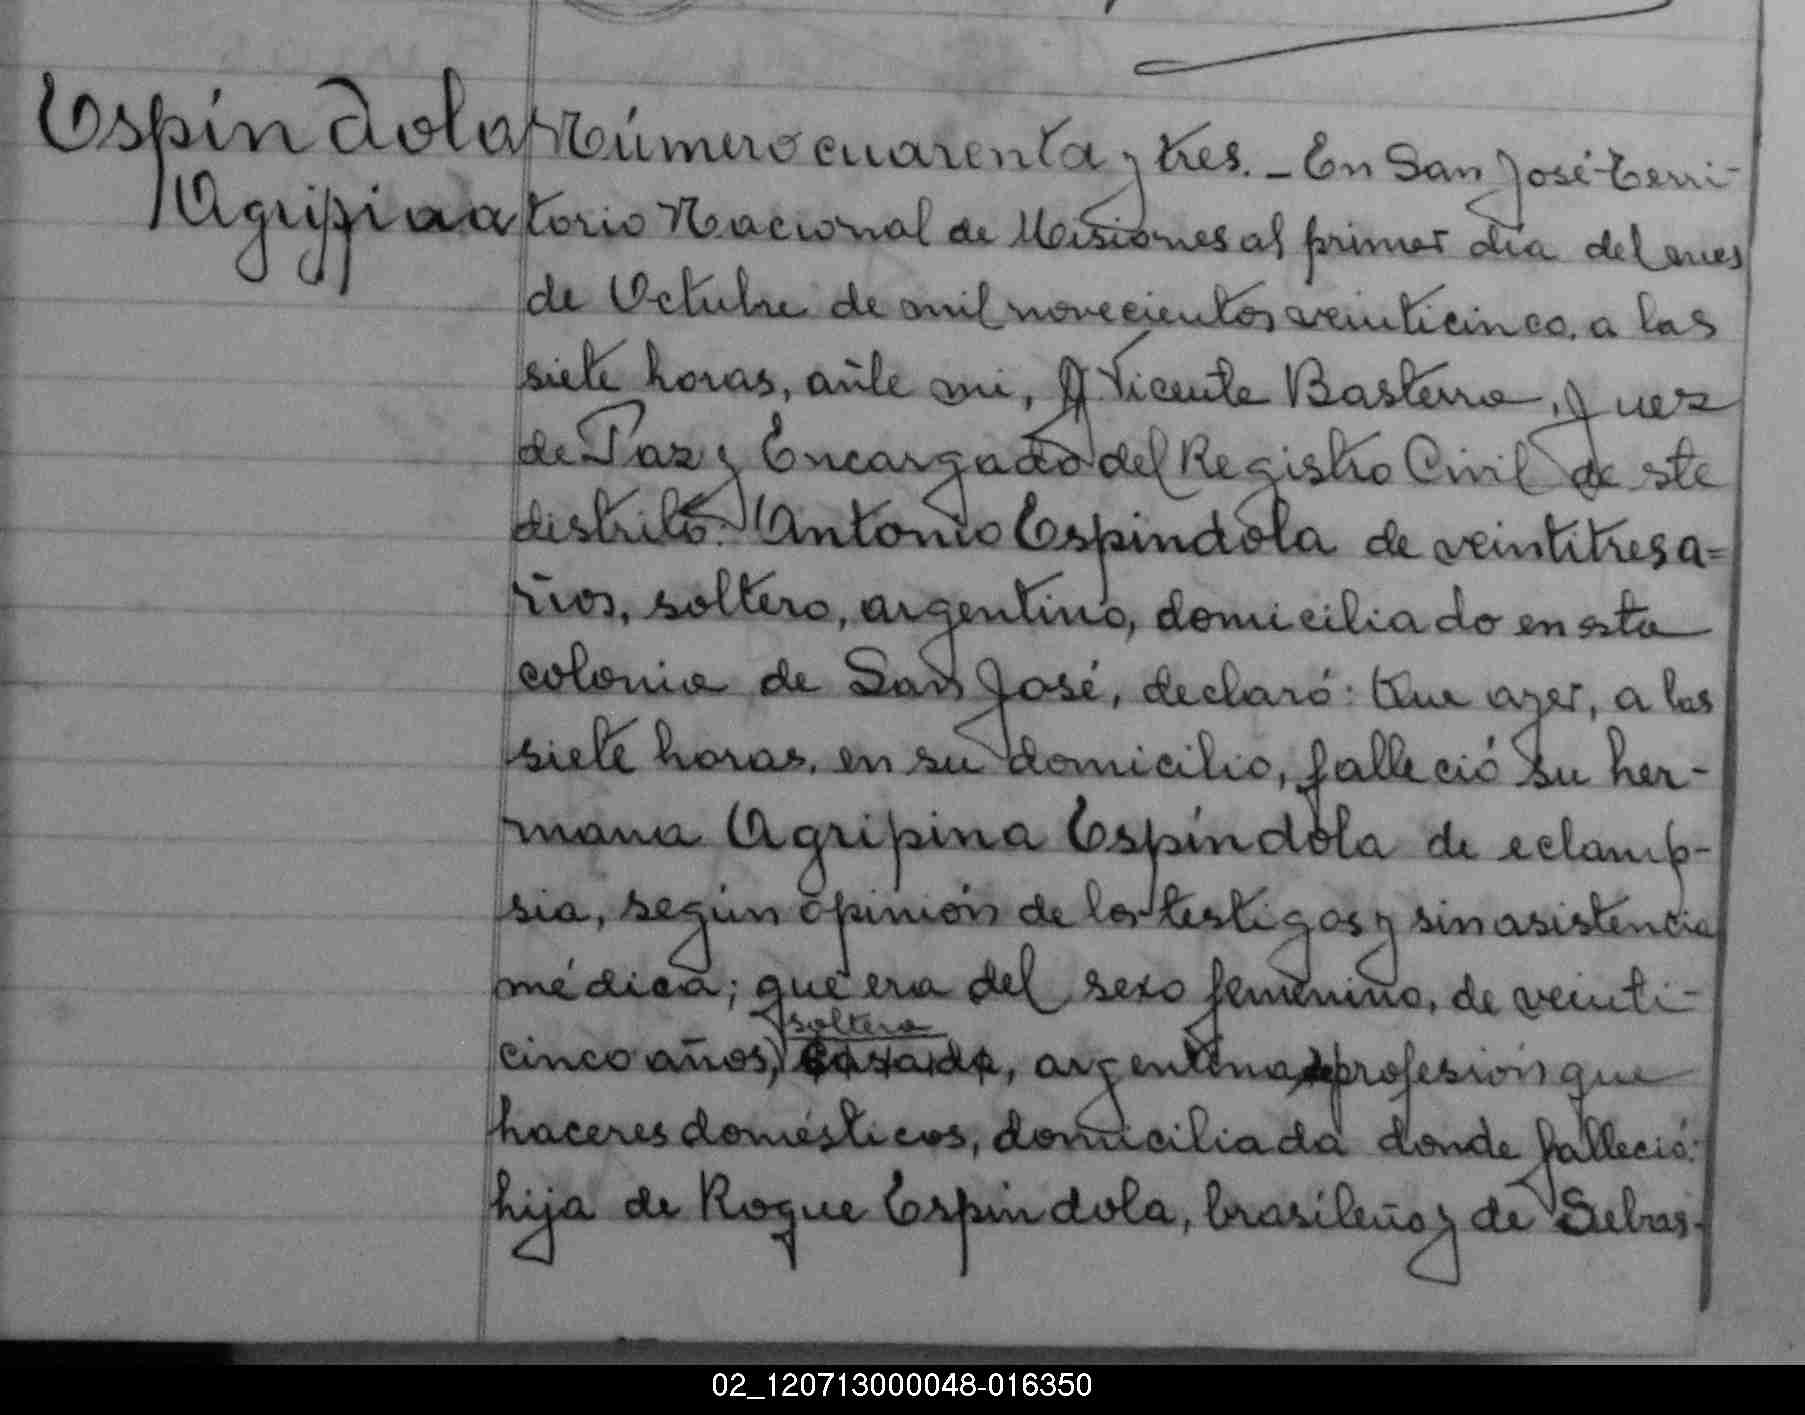 Espíndola
Agripina
Número cuarenta y tres. - En San José Terri-
torio Nacional de Misiones al primer dia del mes
de Octubre de mil novecientos veinticinco, a las
siete horas, ante mi, Vicente Basterra, Juez
de Paz y Encargado del Registro Civil de ste
distrito: Antonio Espíndola de veintitres a=
ños, soltero, argentino, domiciliado en esta
colonia de San José, declaró: Que ayer, a las
siete horas, en su domicilio, falleció su her-
mana Agripina Espíndola de eclamp-
sia, según opinión de los testigos y sin asistencia
médica; que era del sexo femenino, de veinti-
soltera
cinco años, casada, argentina, de profesión que
haceres domésticos, domiciliada donde falleció:
hija de Roque Espíndola, brasileño y de Sebas-
02_120713000048-016350